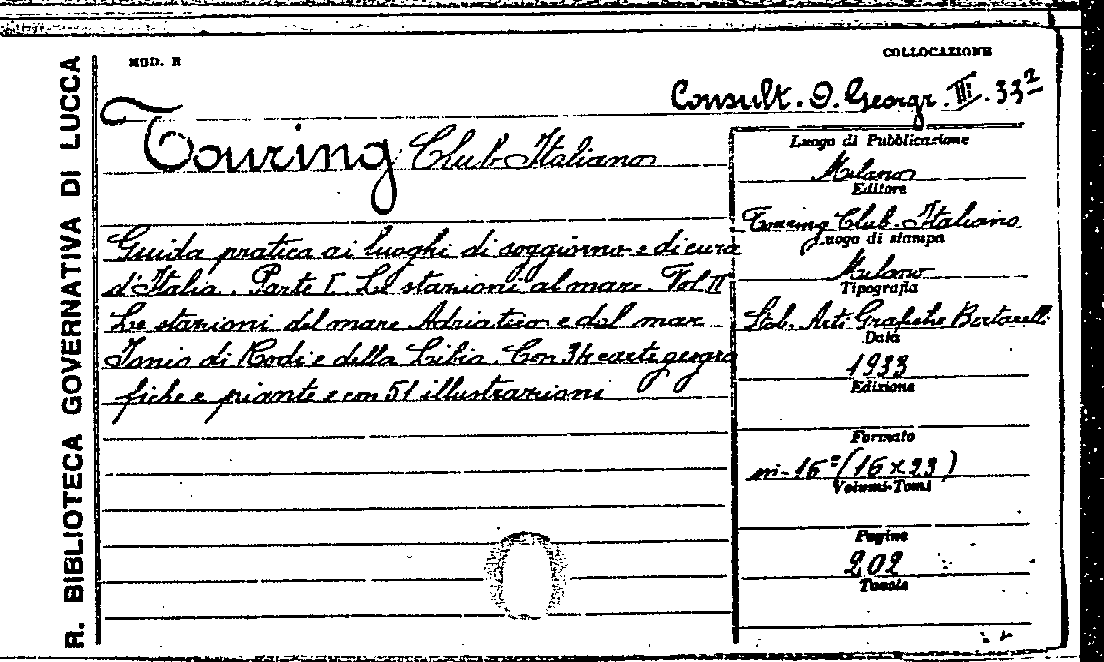 R. BIBLIOTECA GOVERNATIVA DI LUCCA
MOD. R
COLLOCAZIONE
Consult. D. Geogr. III. 33²
Touring Club Italiano
Guida pratica ai luoghi di soggiorno e di cura
d'Italia. Parte I. Le stazioni al mare. Vol II
Le stazioni del mare Adriatico e del mar
Jonio di Rodi e della Libia. Con 34 carte geogra
fiche e piante e con 51 illustrazioni
Luogo di Pubblicazione
Milano
Editore
Touring Club Italiano
Luogo di stampa
Milano
Tipografia
Stab. Arti Grafiche Bertarelli
Data
1933
Edizione
Formato
in-16° (16 x 23)
Volumi-Tomi
Pagine
202
Tavole